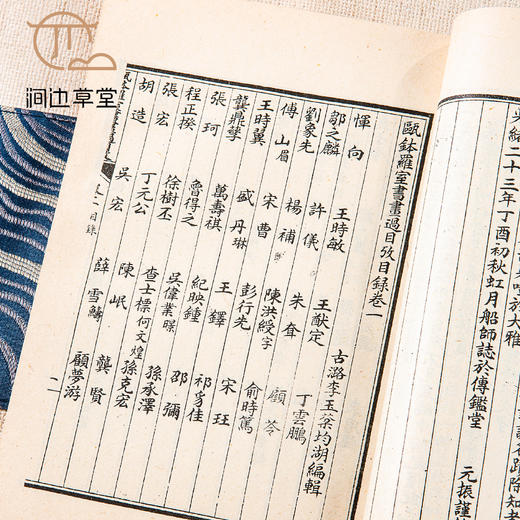 涧边草堂
二十三年丁酉初秋虹月船師誌於傳鑑堂
元振謹
甌鉢羅室書畫過目攷目錄卷一
古潞李玉棻均湖編輯
惲向 王時敏 王猷定 丁雲鵬
郭之麟 許儀 朱耷 顧苓
劉象先 楊補 陳洪綬字 俞時篤
傅山眉 宋曹 彭行先 宋珏
王時翼 盛丹琳 王鐸 祁豸佳
龔鼎孳 萬壽祺 紀映鍾 邵彌
張珂 魯得之 吳偉業暻 孫承澤
程正揆 徐樹丕 查士標何文煌 孫克宏
張宏 丁元公 陳岷 龔賢
胡造 吳宏 薛雪 顧夢游
卷一目錄
二